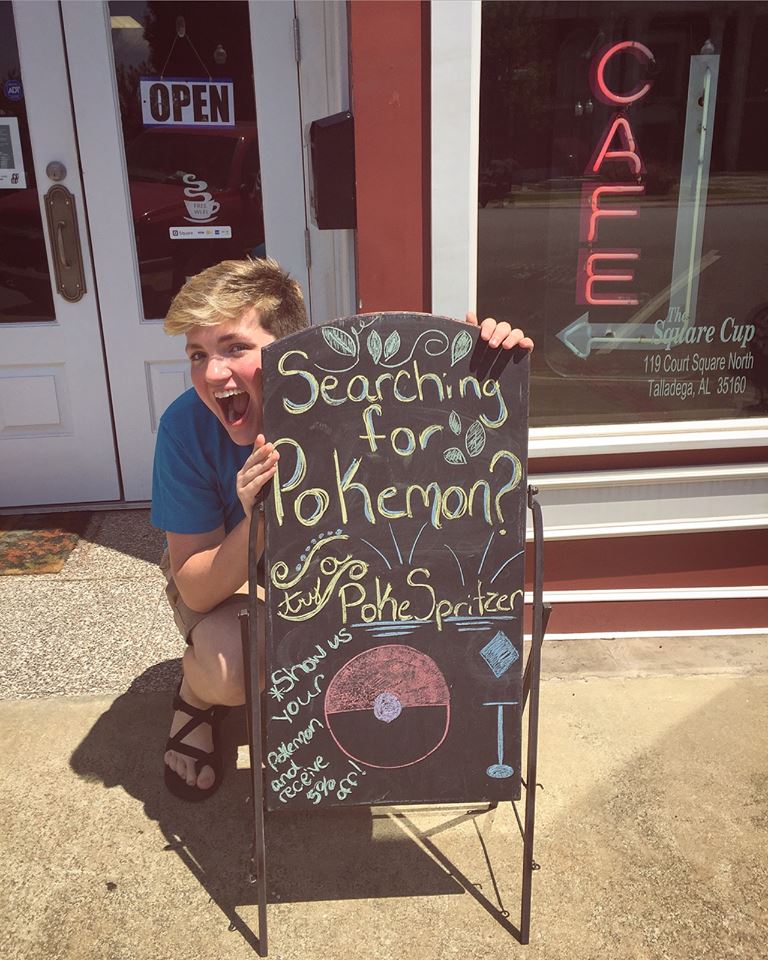 OPEN
FREE
WI-FI
Square
ADT
CAFE
The
Square Cup
119 Court Square North
Talladega, AL 35160
Searching
for
Pokemon?
try a
PokeSpritzer
*Show us
your
Pokemon
and
receive
5% off!